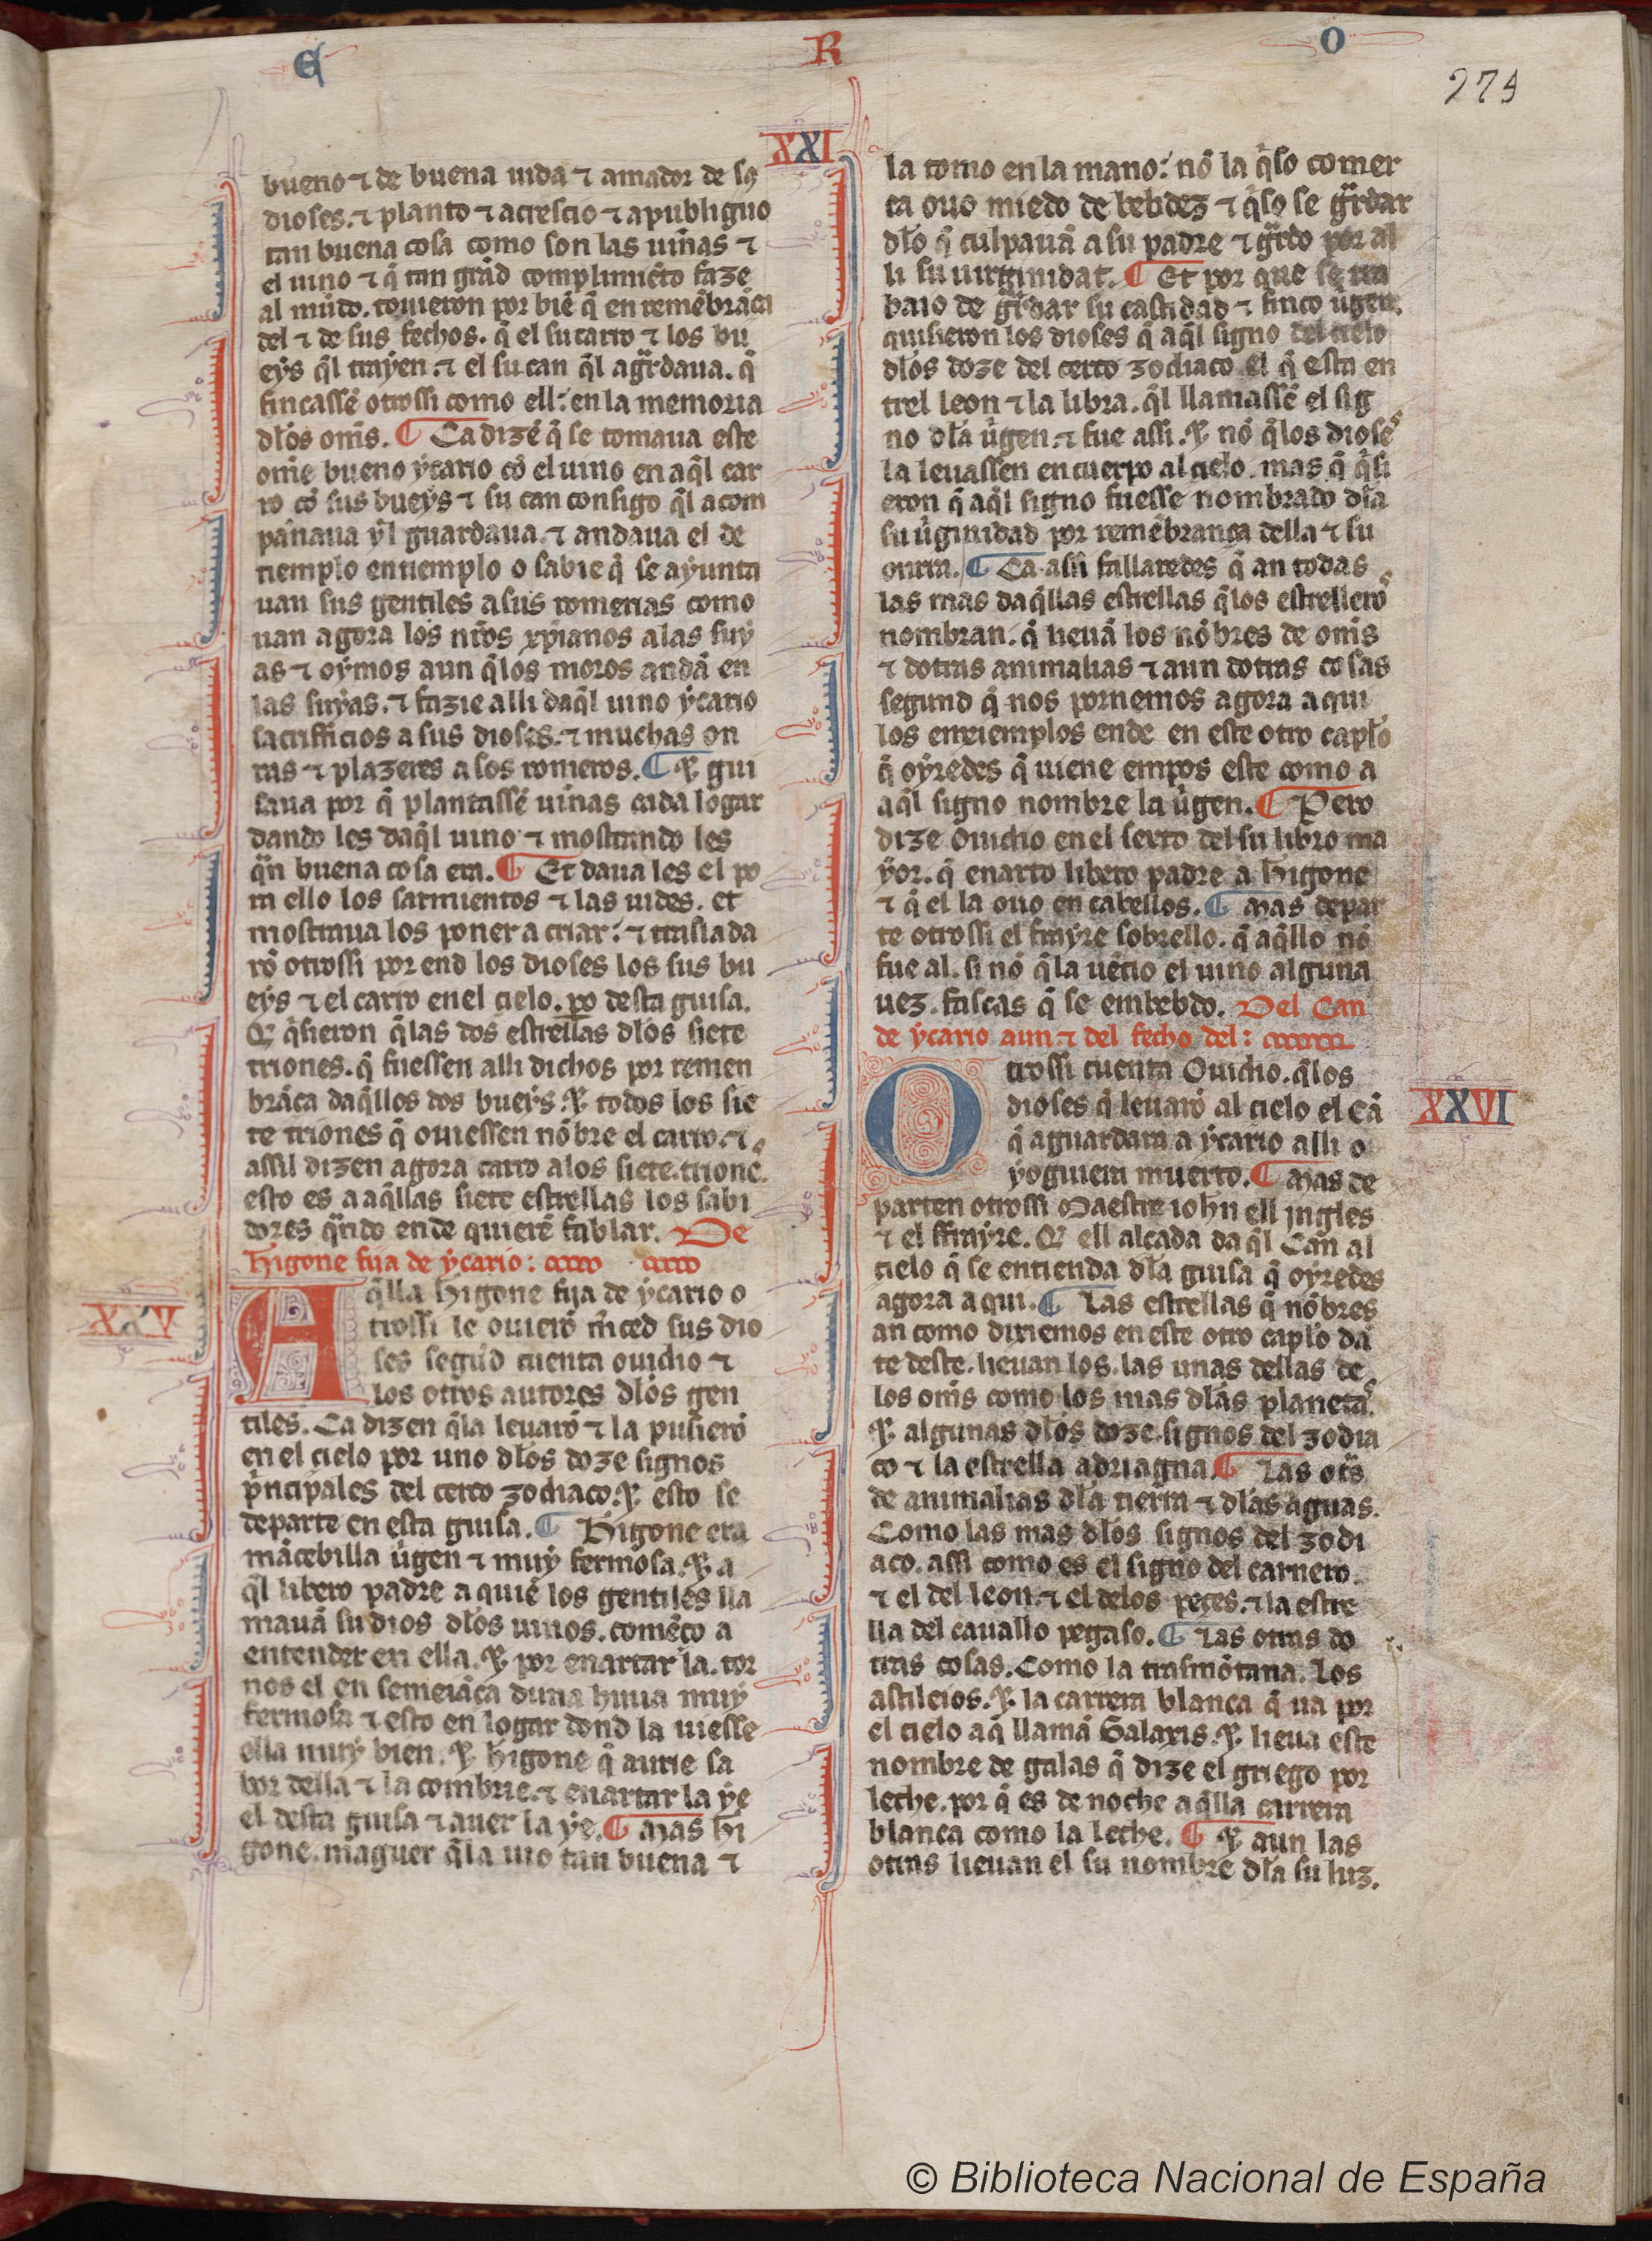 E R O
274
XXI
bueno ⁊ de buena uida ⁊ amador de sꝯ
dioses. ⁊ planto ⁊ acrescio ⁊ apubliguo
tan buena cosa como son las uin̄as ⁊
el uino ⁊ q̄ tan grād complimiēto faze
al mūdo. touieron por biē q̄ en remēbrāça
del ⁊ de sus fechos. q̄ el su carro ⁊ los bu
eẏs q̄l trayen. ⁊ el su can q̄l agr̄daua. q̄
fincassē otrossi como ell: en la memoria
dl̄os om̄s. ¶ Ca dizē q̄ se tomaua este
om̄e bueno ẏcario cō el uino en aq̄l car
ro cō sus bueẏs ⁊ su can consigo q̄l acom
pan̄aua ẏl guardaua. ⁊ andaua el de
tiempo en tiempo o sabie q̄ se aẏunta
uan sus gentiles a sus romerias como
uan agora los nr̄os xp̄ianos a las suẏ
as ⁊ oẏmos aun q̄ los moros andā en
las suẏas. ⁊ fazie alli daq̄l uino ẏcario
sacrifficios a sus dioses. ⁊ muchas on
ras ⁊ plazeres a los romeros. ¶ ⁊ gui
saua por q̄ plantassē uin̄as cada logar
dando les daq̄l uino ⁊ mostrando les
q̄n buena cosa era. ¶ Et daua les el po
ra ello los sarmientos ⁊ las uides. et
mostraua los poner a criar: ⁊ traslada
rō otrossi por end los dioses los sus bu
eẏs ⁊ el carro en el cielo. po desta guisa.
Q̄ q̄sieron q̄ las dos estrellas dl̄os siete
triones. q̄ fuessen alli dichos por remen
brāça daq̄llos dos bueẏs. ⁊ todos los sie
te triones q̄ ouiessen nōbre el carro. ⁊
assil dizen agora carro a los siete trionēs.
esto es a aq̄llas siete estrellas los sabi
dores q̄ndo ende quierē fablar. De
Higone fija de ẏcario:
XXV
Aq̄lla Higone fija de ẏcario o
trossi le ouierō m̄ced sus dio
ses segūd cuenta ouidio ⁊
los otros autores dl̄os gen
tiles. Ca dizen q̄ la leuarō ⁊ la pusierō
en el cielo por uno dl̄os doze signos
p̄ncipales del cerco zodiaco. ⁊ esto se
departe en esta guisa. ¶ Higone era
mācebilla ūgen ⁊ muẏ fermosa. ⁊ a
q̄l libero padre a quiē los gentiles lla
mauā su dios dl̄os uinos. comēço a
entender en ella. ⁊ por enartar la. tor
nos el en semeiāça duna huua muẏ
fermosa ⁊ esto en logar dond la uiesse
ella muẏ bien. ⁊ Higone q̄ aurie sa
bor della ⁊ la combrie. ⁊ enartar la ẏe
el desta guisa ⁊ auer la ẏe. ¶ Mas Hi
gone. maguer q̄ la uio tan buena ⁊
la tomo en la mano: nō la q̄so comer
ca ouo miedo de bebdez ⁊ q̄so se gr̄dar
dl̄o q̄ culpauā a su padre ⁊ gr̄do por al
li su uirginidat. ¶ Et por que se tra
baio de gr̄dar su castidad ⁊ finco ūgen.
quisieron los dioses q̄ aq̄l signo del cielo
dl̄os doze del cerco zodiaco el q̄ esta en
trel leon ⁊ la libra. q̄l llamassē el sig
no dl̄a ūgen. ⁊ fue assi. ⁊ nō q̄ los dioses
la leuassen en cuerpo al cielo. mas q̄ q̄si
eron q̄ aq̄l signo fuesse nombrado dl̄a
su ūginidad por remēbrança della ⁊ su
onrra. ¶ Ca assi fallaredes q̄ an todas
las mas daq̄llas estrellas q̄ los estrelleros
nombran. q̄ lieuā los nōbres de om̄s
⁊ dotras animalias ⁊ aun dotras cosas
segund q̄ nos pornemos agora aqui
los enxiemplos ende en este otro capl̄o
q̄ oẏredes q̄ uiene empos este como a
aq̄l signo nombre la ūgen. ¶ Pero
dize Ouidio en el sexto del su libro ma
ẏor. q̄ enarto libero padre a Higone
⁊ q̄ el la ouo en cabellos. ¶ Mas depar
te otrossi el fraẏre sobrello. q̄ aq̄llo nō
fue al. si nō q̄ la uēcio el uino alguna
uez. fascas q̄ se embebdo. Del Can
de ẏcario aun ⁊ del fecho del:
XXVI
Otrossi cuenta Ouidio. q̄ los
dioses q̄ leuarō al cielo el Cā
q̄ aguardara a ẏcario alli o
ẏoguiera muerto. ¶ Mas de
parten otrossi Maestre iohn ell jngles
⁊ el fraẏre. Q̄ ell alçada daq̄l Can al
cielo q̄ se entienda dl̄a guisa q̄ oẏredes
agora aqui. ¶ Las estrellas q̄ nōbres
an como dixiemos en este otro capl̄o dā
te deste. lieuan los. las unas dellas de
los om̄s como los mas dl̄as planetas.
⁊ algunas dl̄os doze signos del zodia
co ⁊ la estrella adriagna ¶ Las otr̄s
de animalias dl̄a tierra ⁊ dl̄as aguas.
Como las mas dl̄os signos del zodi
aco. assi como es el signo del carnero.
⁊ el del leon. ⁊ el delos peçes. ⁊ la estre
lla del cauallo pegaso. ¶ Las otras do
tras cosas. Como la trasmōtana. Los
astileios. ⁊ la carrera blanca q̄ ua por
el cielo aq̄ llamā Galaxis. ⁊ lieua este
nombre de galas q̄ dize el griego por
leche. por q̄ es de noche aq̄lla carrera
blanca como la leche. ¶ ⁊ aun las
otras lieuan el su nombre dl̄a su luz.
© Biblioteca Nacional de España